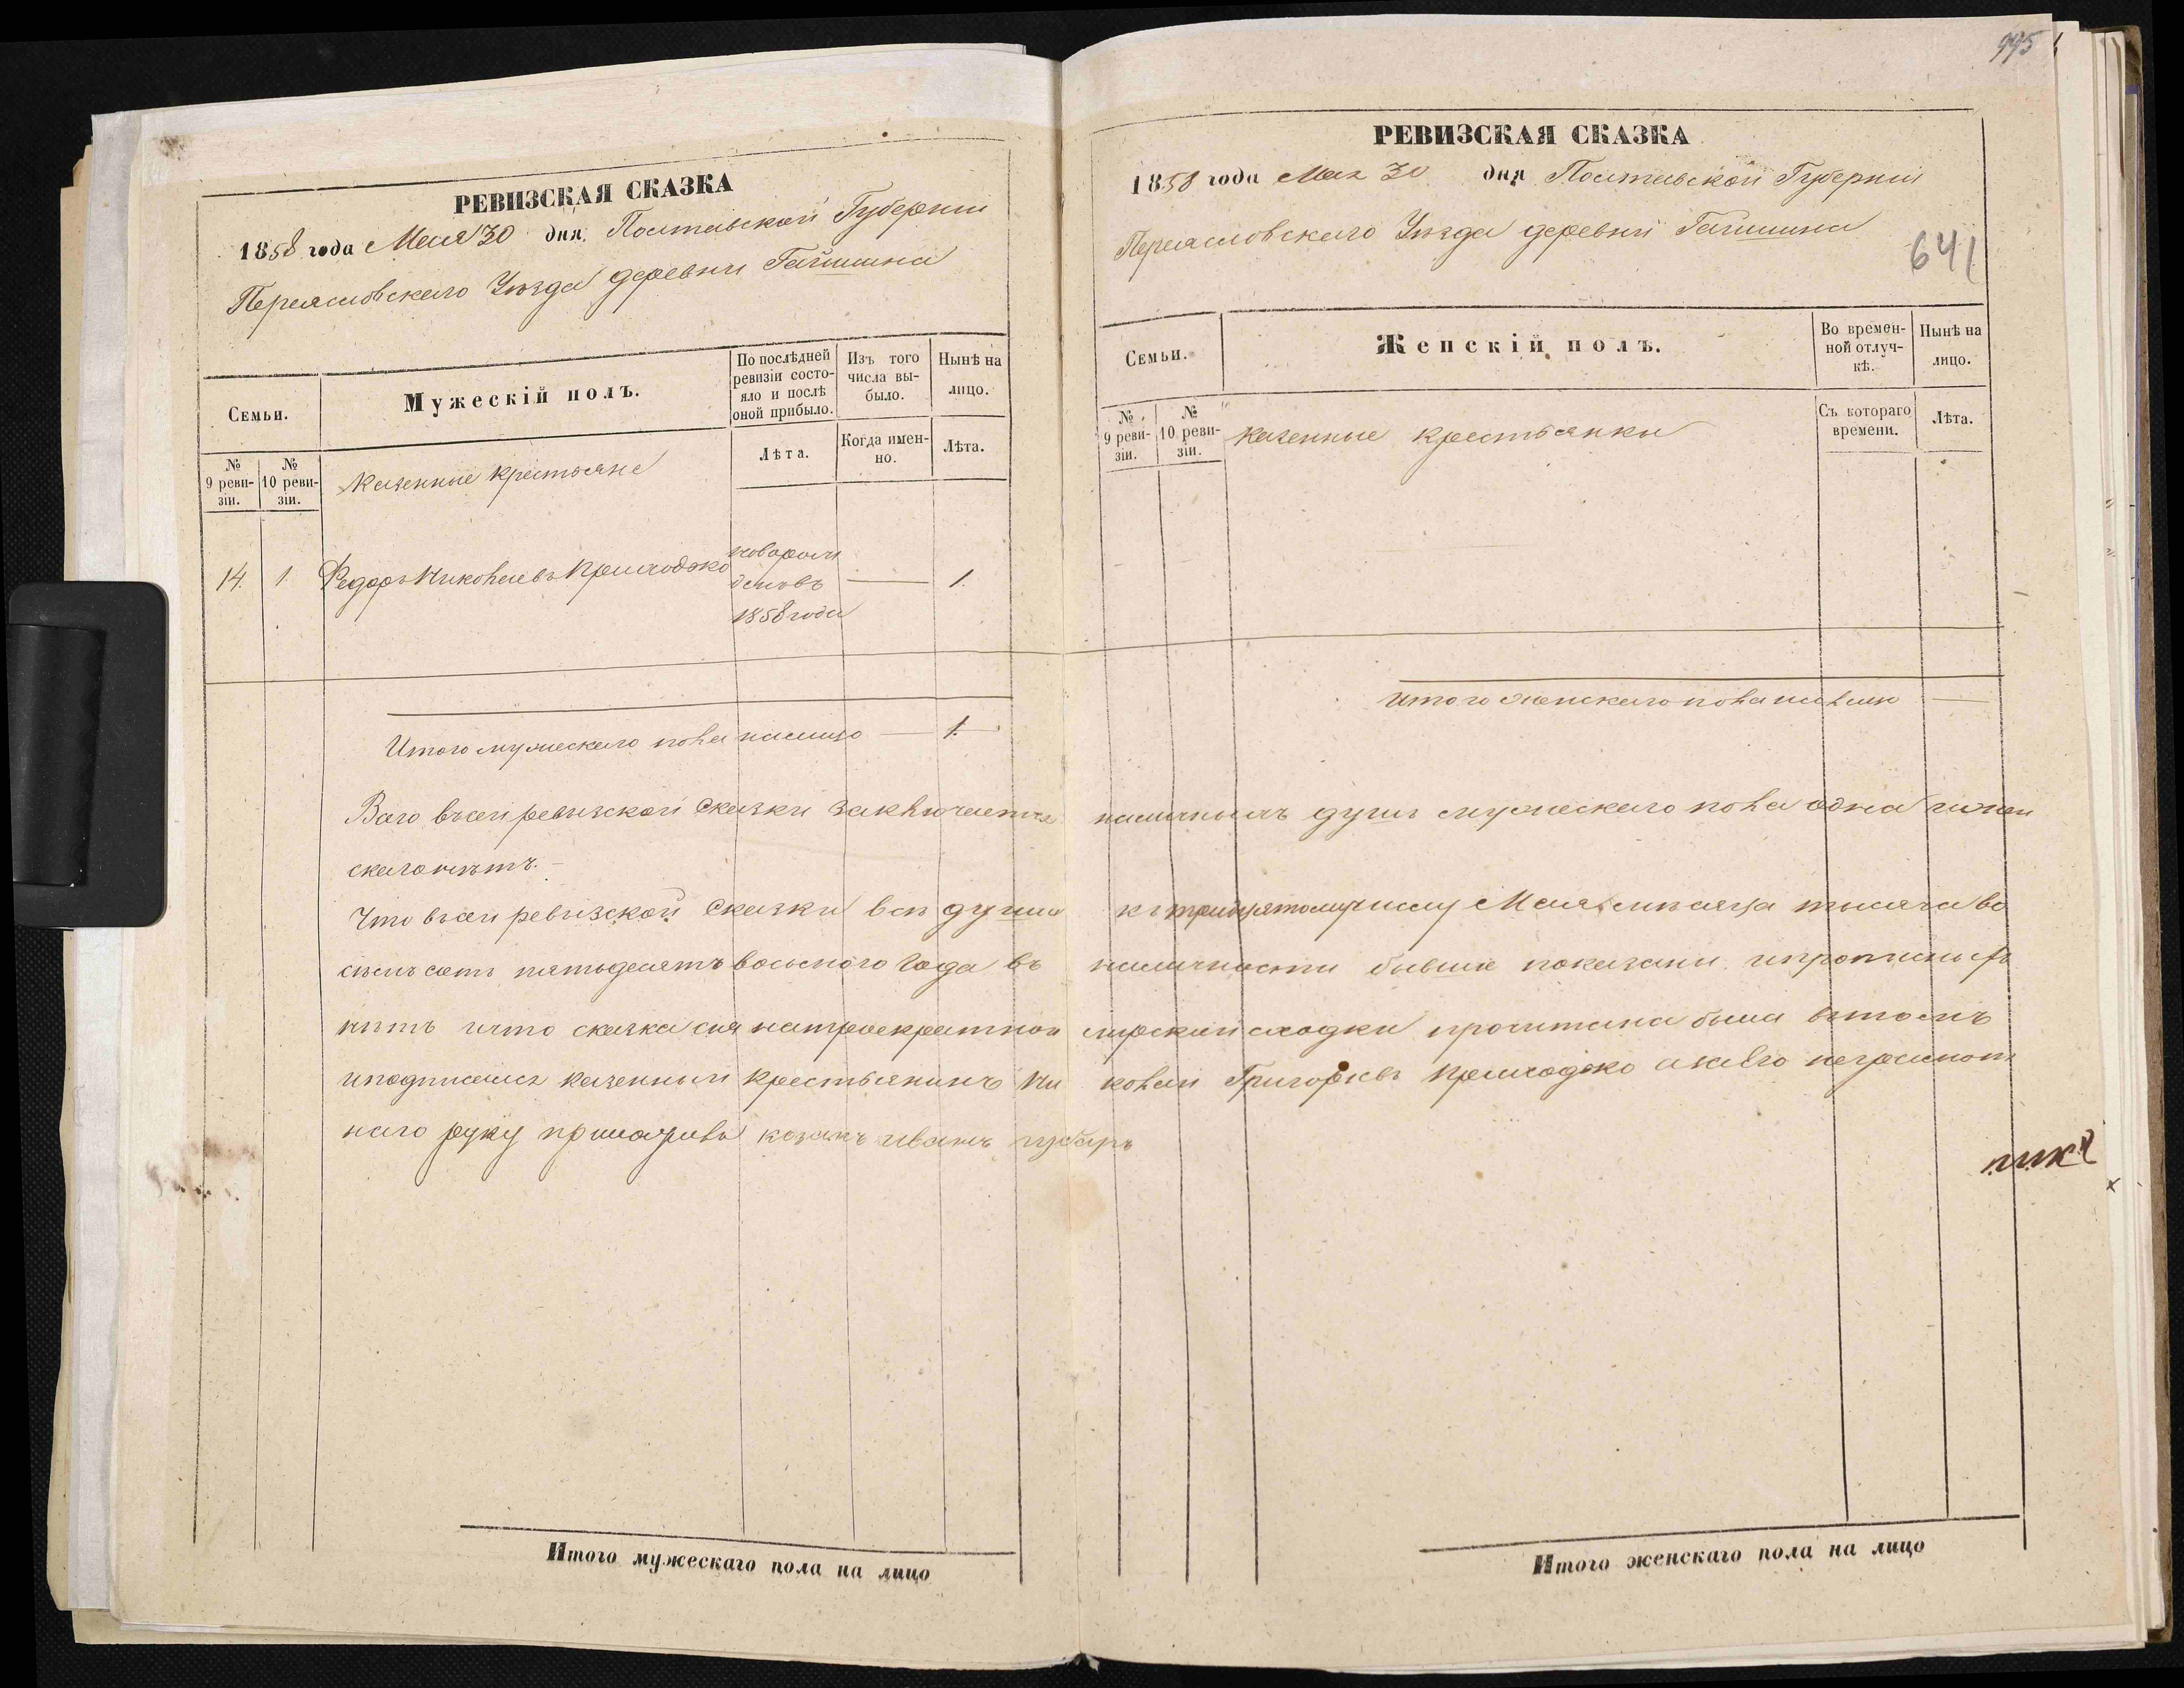 РЕВИЗСКАЯ СКАЗКА
1858 года Мая 30 дня, Полтавской Губернии
Переясловского Уезда деревни Гайшина
Семьи.
Мужескій полъ.
По послѣдней ревизіи состояло и послѣ оной прибыло.
Изъ того числа выбыло.
Нынѣ на лицо.
№ 9 ревизіи.
№ 10 ревизіи.
Казенные крестьяне
Лѣта.
Когда именно.
Лѣта.
14. 1 Федоръ Николаевъ Приходько новорож денъ въ 1858 года — 1.
Итого мужескаго пола налицо — 1.
Всего въ сей ревизской Сказки заключается
скаго нѣтъ. -
Что въ сей ревизской Сказки всѣ души
сьемъ сотъ пятьдесятъ восьмого Года въ
нѣтъ и что сказка сия на троекратной
и подписался казенный крестьянинъ Ни
наго руку приложилъ козакъ иванъ губарь
Итого мужескаго пола на лицо
995
РЕВИЗСКАЯ СКАЗКА
1858 года Мая 30 дня Полтавской Губернии
Переясловского Уезда деревни Гайшина
641
Семьи.
Женскій полъ.
Во временной отлучкѣ.
Нынѣ на лицо.
№ 9 ревизіи.
№ 10 ревизіи.
казенные крестьянки
Съ котораго времени.
Лѣта.
Итого женскаго пола налицо —
наличныхъ душъ мужескаго пола одна и жен
къ тридцятому числу Мая мѣсяца тысяча во
наличности бывшие показани и прописныхъ
мирской сходки прочитана была въ томъ
колай Григорьевъ Приходько а за его неграмот
Итого женскаго пола на лицо